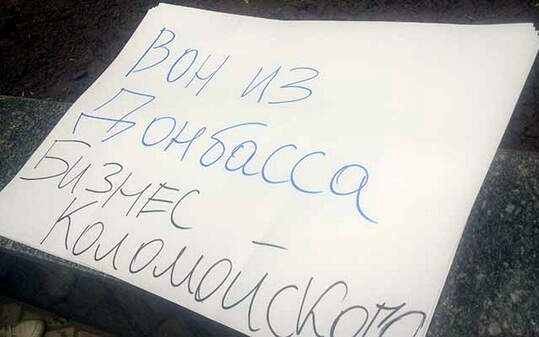 Вон из
Донбасса
Бизнес
Коломойского